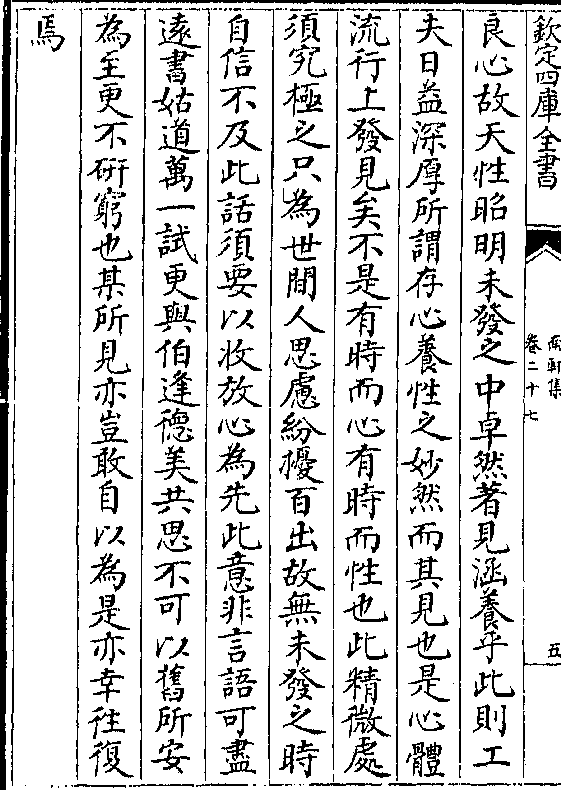 欽定四庫全書
南軒集
卷二十七
五
良心故天性昭明未發之中卓然著見涵養乎此則工
夫日益深厚所謂存心養性之妙然而其見也是心體
流行上發見矣不是有時而心有時而性也此精微處
須究極之只為世間人思慮紛擾百出故無未發之時
自信不及此話須要以收放心為先此意非言語可盡
遠書姑道萬一試更與伯逢德美共思不可以舊所安
為至更不研窮也某所見亦豈敢自以為是亦幸徃復
焉